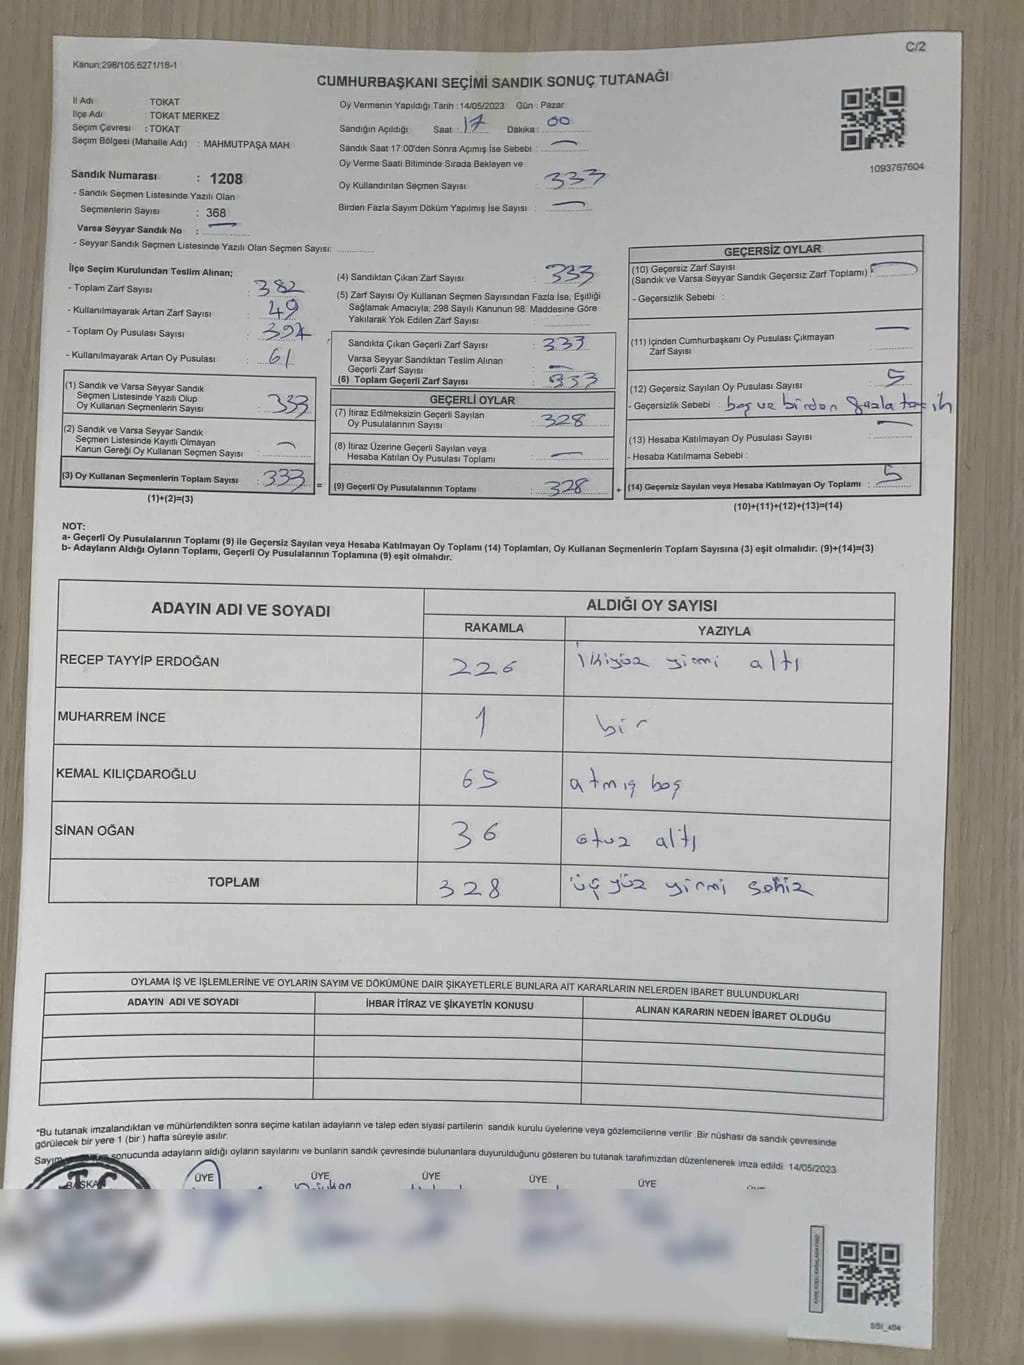 C/2
Kanun;298/105;6271/18-1
CUMHURBAŞKANI SEÇİMİ SANDIK SONUÇ TUTANAĞI
İl Adı : TOKAT
İlçe Adı : TOKAT MERKEZ
Seçim Çevresi : TOKAT
Seçim Bölgesi (Mahalle Adı) : MAHMUTPAŞA MAH.
Sandık Numarası : 1208
- Sandık Seçmen Listesinde Yazılı Olan
Seçmenlerin Sayısı : 368
Varsa Seyyar Sandık No :
- Seyyar Sandık Seçmen Listesinde Yazılı Olan Seçmen Sayısı:
Oy Vermenin Yapıldığı Tarih : 14/05/2023 Gün : Pazar
Sandığın Açıldığı Saat : 17 Dakika : 00
Sandık Saat 17:00'den Sonra Açımış İse Sebebi :
Oy Verme Saati Bitiminde Sırada Bekleyen ve
Oy Kullandırılan Seçmen Sayısı : 333
Birden Fazla Sayım Döküm Yapılmış İse Sayısı :
1093767604
İlçe Seçim Kurulundan Teslim Alınan;
- Toplam Zarf Sayısı : 382
- Kullanılmayarak Artan Zarf Sayısı : 49
- Toplam Oy Pusulası Sayısı : 394
- Kullanılmayarak Artan Oy Pusulası : 61
(1) Sandık ve Varsa Seyyar Sandık
Seçmen Listesinde Yazılı Olup
Oy Kullanan Seçmenlerin Sayısı : 333
(2) Sandık ve Varsa Seyyar Sandık
Seçmen Listesinde Kayıtlı Olmayan
Kanun Gereği Oy Kullanan Seçmen Sayısı :
(3) Oy Kullanan Seçmenlerin Toplam Sayısı : 333 =
(1)+(2)=(3)
(4) Sandıktan Çıkan Zarf Sayısı : 333
(5) Zarf Sayısı Oy Kullanan Seçmen Sayısından Fazla İse, Eşitliği
Sağlamak Amacıyla; 298 Sayılı Kanunun 98. Maddesine Göre
Yakılarak Yok Edilen Zarf Sayısı :
Sandıkta Çıkan Geçerli Zarf Sayısı : 333
Varsa Seyyar Sandıktan Teslim Alınan
Geçerli Zarf Sayısı :
(6) Toplam Geçerli Zarf Sayısı : 333
GEÇERLİ OYLAR
(7) İtiraz Edilmeksizin Geçerli Sayılan
Oy Pusulalarının Sayısı : 328
(8) İtiraz Üzerine Geçerli Sayılan veya
Hesaba Katılan Oy Pusulası Toplamı :
(9) Geçerli Oy Pusulalarının Toplamı : 328 +
GEÇERSİZ OYLAR
(10) Geçersiz Zarf Sayısı
(Sandık ve Varsa Seyyar Sandık Geçersiz Zarf Toplamı) :
- Geçersizlik Sebebi :
(11) İçinden Cumhurbaşkanı Oy Pusulası Çıkmayan
Zarf Sayısı :
(12) Geçersiz Sayılan Oy Pusulası Sayısı : 5
- Geçersizlik Sebebi : boş ve birden fazla tercih
(13) Hesaba Katılmayan Oy Pusulası Sayısı :
- Hesaba Katılmama Sebebi :
(14) Geçersiz Sayılan veya Hesaba Katılmayan Oy Toplamı : 5
(10)+(11)+(12)+(13)=(14)
NOT:
a- Geçerli Oy Pusulalarının Toplamı (9) ile Geçersiz Sayılan veya Hesaba Katılmayan Oy Toplamı (14) Toplamları, Oy Kullanan Seçmenlerin Toplam Sayısına (3) eşit olmalıdır. (9)+(14)=(3)
b- Adayların Aldığı Oyların Toplamı, Geçerli Oy Pusulalarının Toplamına (9) eşit olmalıdır.
ADAYIN ADI VE SOYADI ALDIĞI OY SAYISI
RAKAMLA YAZIYLA
RECEP TAYYİP ERDOĞAN 226 ikiyüz yirmi altı
MUHARREM İNCE 1 bir
KEMAL KILIÇDAROĞLU 65 atmış beş
SİNAN OĞAN 36 otuz altı
TOPLAM 328 üçyüz yirmi sekiz
OYLAMA İŞ VE İŞLEMLERİNE VE OYLARIN SAYIM VE DÖKÜMÜNE DAİR ŞİKAYETLERLE BUNLARA AİT KARARLARIN NELERDEN İBARET BULUNDUKLARI
ADAYIN ADI VE SOYADI İHBAR İTİRAZ VE ŞİKAYETİN KONUSU ALINAN KARARIN NEDEN İBARET OLDUĞU
*Bu tutanak imzalandıktan ve mühürlendikten sonra seçime katılan adayların ve talep eden siyasi partilerin sandık kurulu üyelerine veya gözlemcilerine verilir .Bir nüshası da sandık çevresinde
görülecek bir yere 1 (bir ) hafta süreyle asılır.
sonucunda adayların aldığı oyların sayılarını ve bunların sandık çevresinde bulunanlara duyurulduğunu gösteren bu tutanak tarafımızdan düzenlenerek imza edildi. 14/05/2023
BAŞKAN ÜYE ÜYE ÜYE ÜYE ÜYE
SSI_404